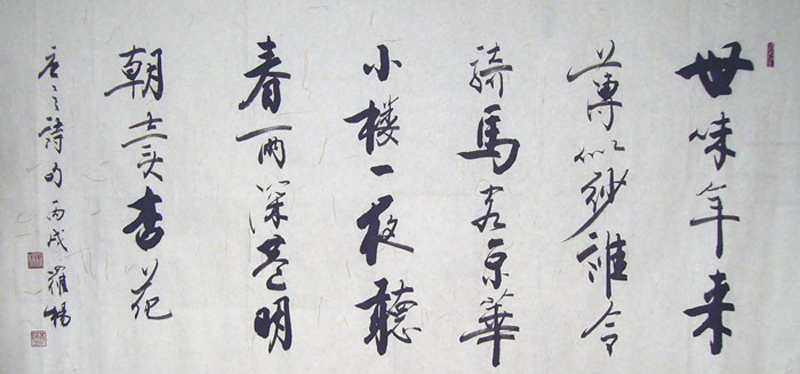 世味年来
薄似紗誰令
騎馬客京華
小楼一夜聽
春雨深巷明
朝賣杏花
詩句丙戌羅楊